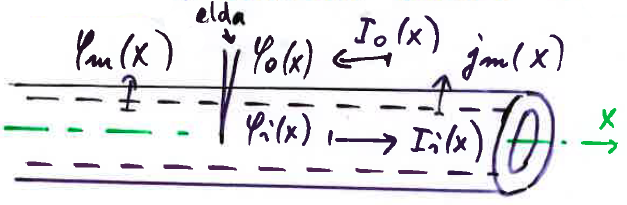 elda
φm(x) φo(x) Io(x) jm(x)
φi(x) Ii(x) x